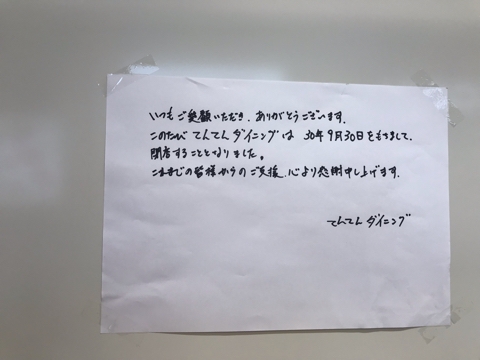 いつもご愛顧いただき、ありがとうございます。
このたび てんてんダイニングは 30年9月30日をもちまして、
閉店することとなりました。
これまでの皆様からのご支援、心より感謝申し上げます。
てんてんダイニング